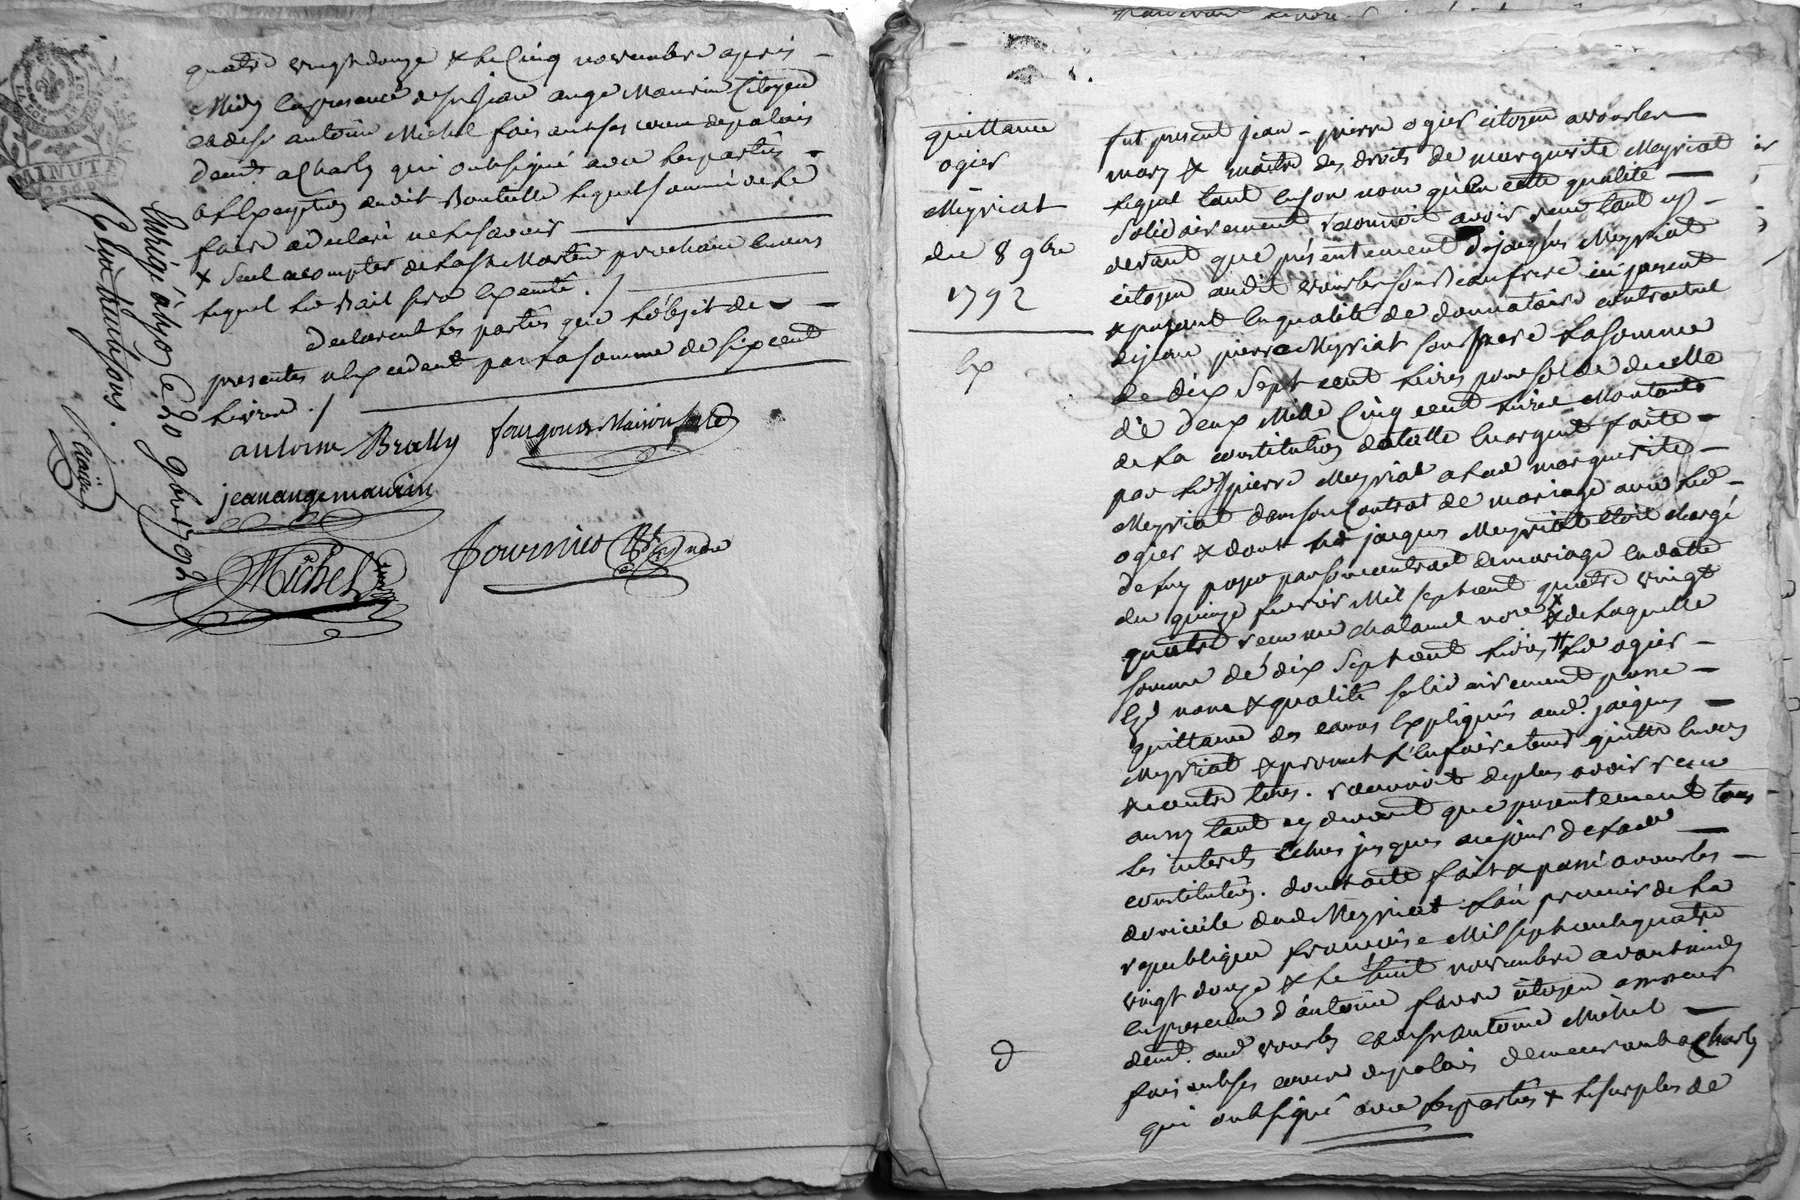 MINUTE
quatre vingt douze & le Cinq novembre apres
Midy En presence de Sr jean ange Maurin Citoyen
et de Sr antoine Michel fais
demt. a Charly qui ont signé avec les parties
a l'Exception dudit Bouteille lequel sommé de le
faire a declaré ne le scavoir
x Seul a compter de la St Martin prochain
lequel led Bail sera Exempté ./
declarent les parties que l'objet de
presentes n'Excedent pas la somme de six cent
livres ./
antoine Brally
jean ange maurin
Michel
fournier
Enrigé à Lyon Le 20 9bre 1792
quittance
ogier
Meyriat
du 8 9bre
1792
Ex
fut present jean-pierre ogier citoyen a vourles
mary & maitre des droits de marguerite Meyriat
lequel tant En son nom qu'En cette qualité
Solidairement reconnoit avoir reçu tant cy
devant que présentement de jacques Meyriat
citoyen audit vourles son Beaufrere ici present
& payant En qualité de donnataire contractuel
de jean pierre Meyriat son pere la somme
de dix Sept cent livres pour solde de celle
de deux Mille Cinq cent livres Montant
de la constitution dotalle En argent faite
par led pierre Meyriat a lad marguerite
Meyriat dans son Contrat de mariage avec led
ogier & dont led jacques Meyriat étoit chargé
de luy payer par son contrat de mariage En datte
du quinze fevrier Mil sept cent quatre vingt
quatre reçu me chalamel nore & de laquelle
somme de dix Sept cent livres led ogier
Esd nom & qualité solidairement passe
quittance des causes Expliquées aud. jacques
Meyriat & promet l'En faire tenir quitte Envers
& contre tous. reconnoit de plus avoir reçu
aussy tant cy devant que presentement tous
les interets Echus jusques au jour de lade
constitution. dont acte fait & passé a vourles
domicile dud Meyriat l'an premier de la
republique françoise Mil sept cent quatre
vingt douze & le huit novembre avant midy
En presence d'antoine favre citoyen
demt. aud vourles et de Sr antoine Michel
fais demeurant a Charly
qui ont signé avec les parties & le surplus de